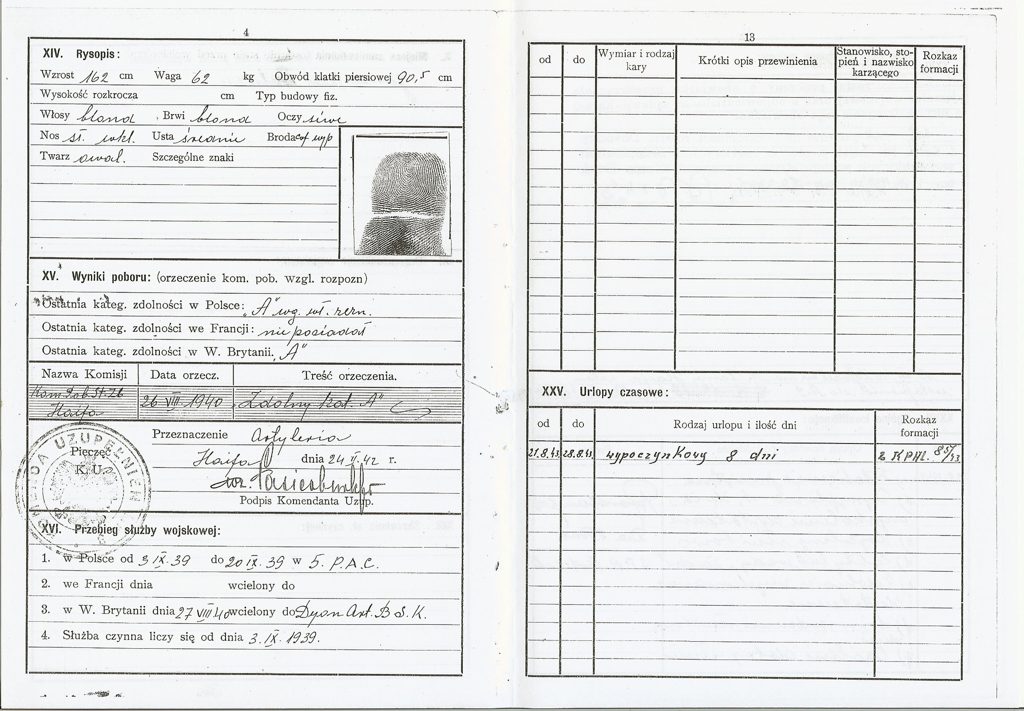 4
XIV. Rysopis:
Wzrost 162 cm Waga 62 kg Obwód klatki piersiowej 90,5 cm
Wysokość rozkrocza cm Typ budowy fiz.
Włosy blond, Brwi blond Oczy siwe
Nos śr. wkl. Usta średnie Broda cof wyp
Twarz owal. Szczególne znaki
XV. Wyniki poboru: (orzeczenie kom. pob. wzgl. rozpozn)
Ostatnia kateg. zdolności w Polsce: „A" wg. wł. zezn.
Ostatnia kateg. zdolności we Francji: nie posiadał
Ostatnia kateg. zdolności w W. Brytanii „A"
Nazwa Komisji Data orzecz. Treść orzeczenia.
Kom. Pob. St. 26 Haifa 26 VIII 1940 „Zdolny kat. A"
Przeznaczenie Artyleria
Haifa dnia 24 II. 42 r.
Podpis Komendanta Uzup.
KOMENDA UZUPEŁNIEŃ
Pieczęć
K. U.
XVI. Przebieg służby wojskowej:
1. w Polsce od 3 IX. 39 do 20 IX. 39 w 5. P.A.C.
2. we Francji dnia wcielony do
3. w W. Brytanii dnia 27 VIII 40 wcielony do Dyon Art. B S. K.
4. Służba czynna liczy się od dnia 3. IX. 1939.
13
od do Wymiar i rodzaj kary Krótki opis przewinienia Stanowisko, stopień i nazwisko karzącego Rozkaz formacji
XXV. Urlopy czasowe:
od do Rodzaj urlopu i ilość dni Rozkaz formacji
21.8.43 28.8.43 wypoczynkowy 8 dni 2 KPAL. 85/43